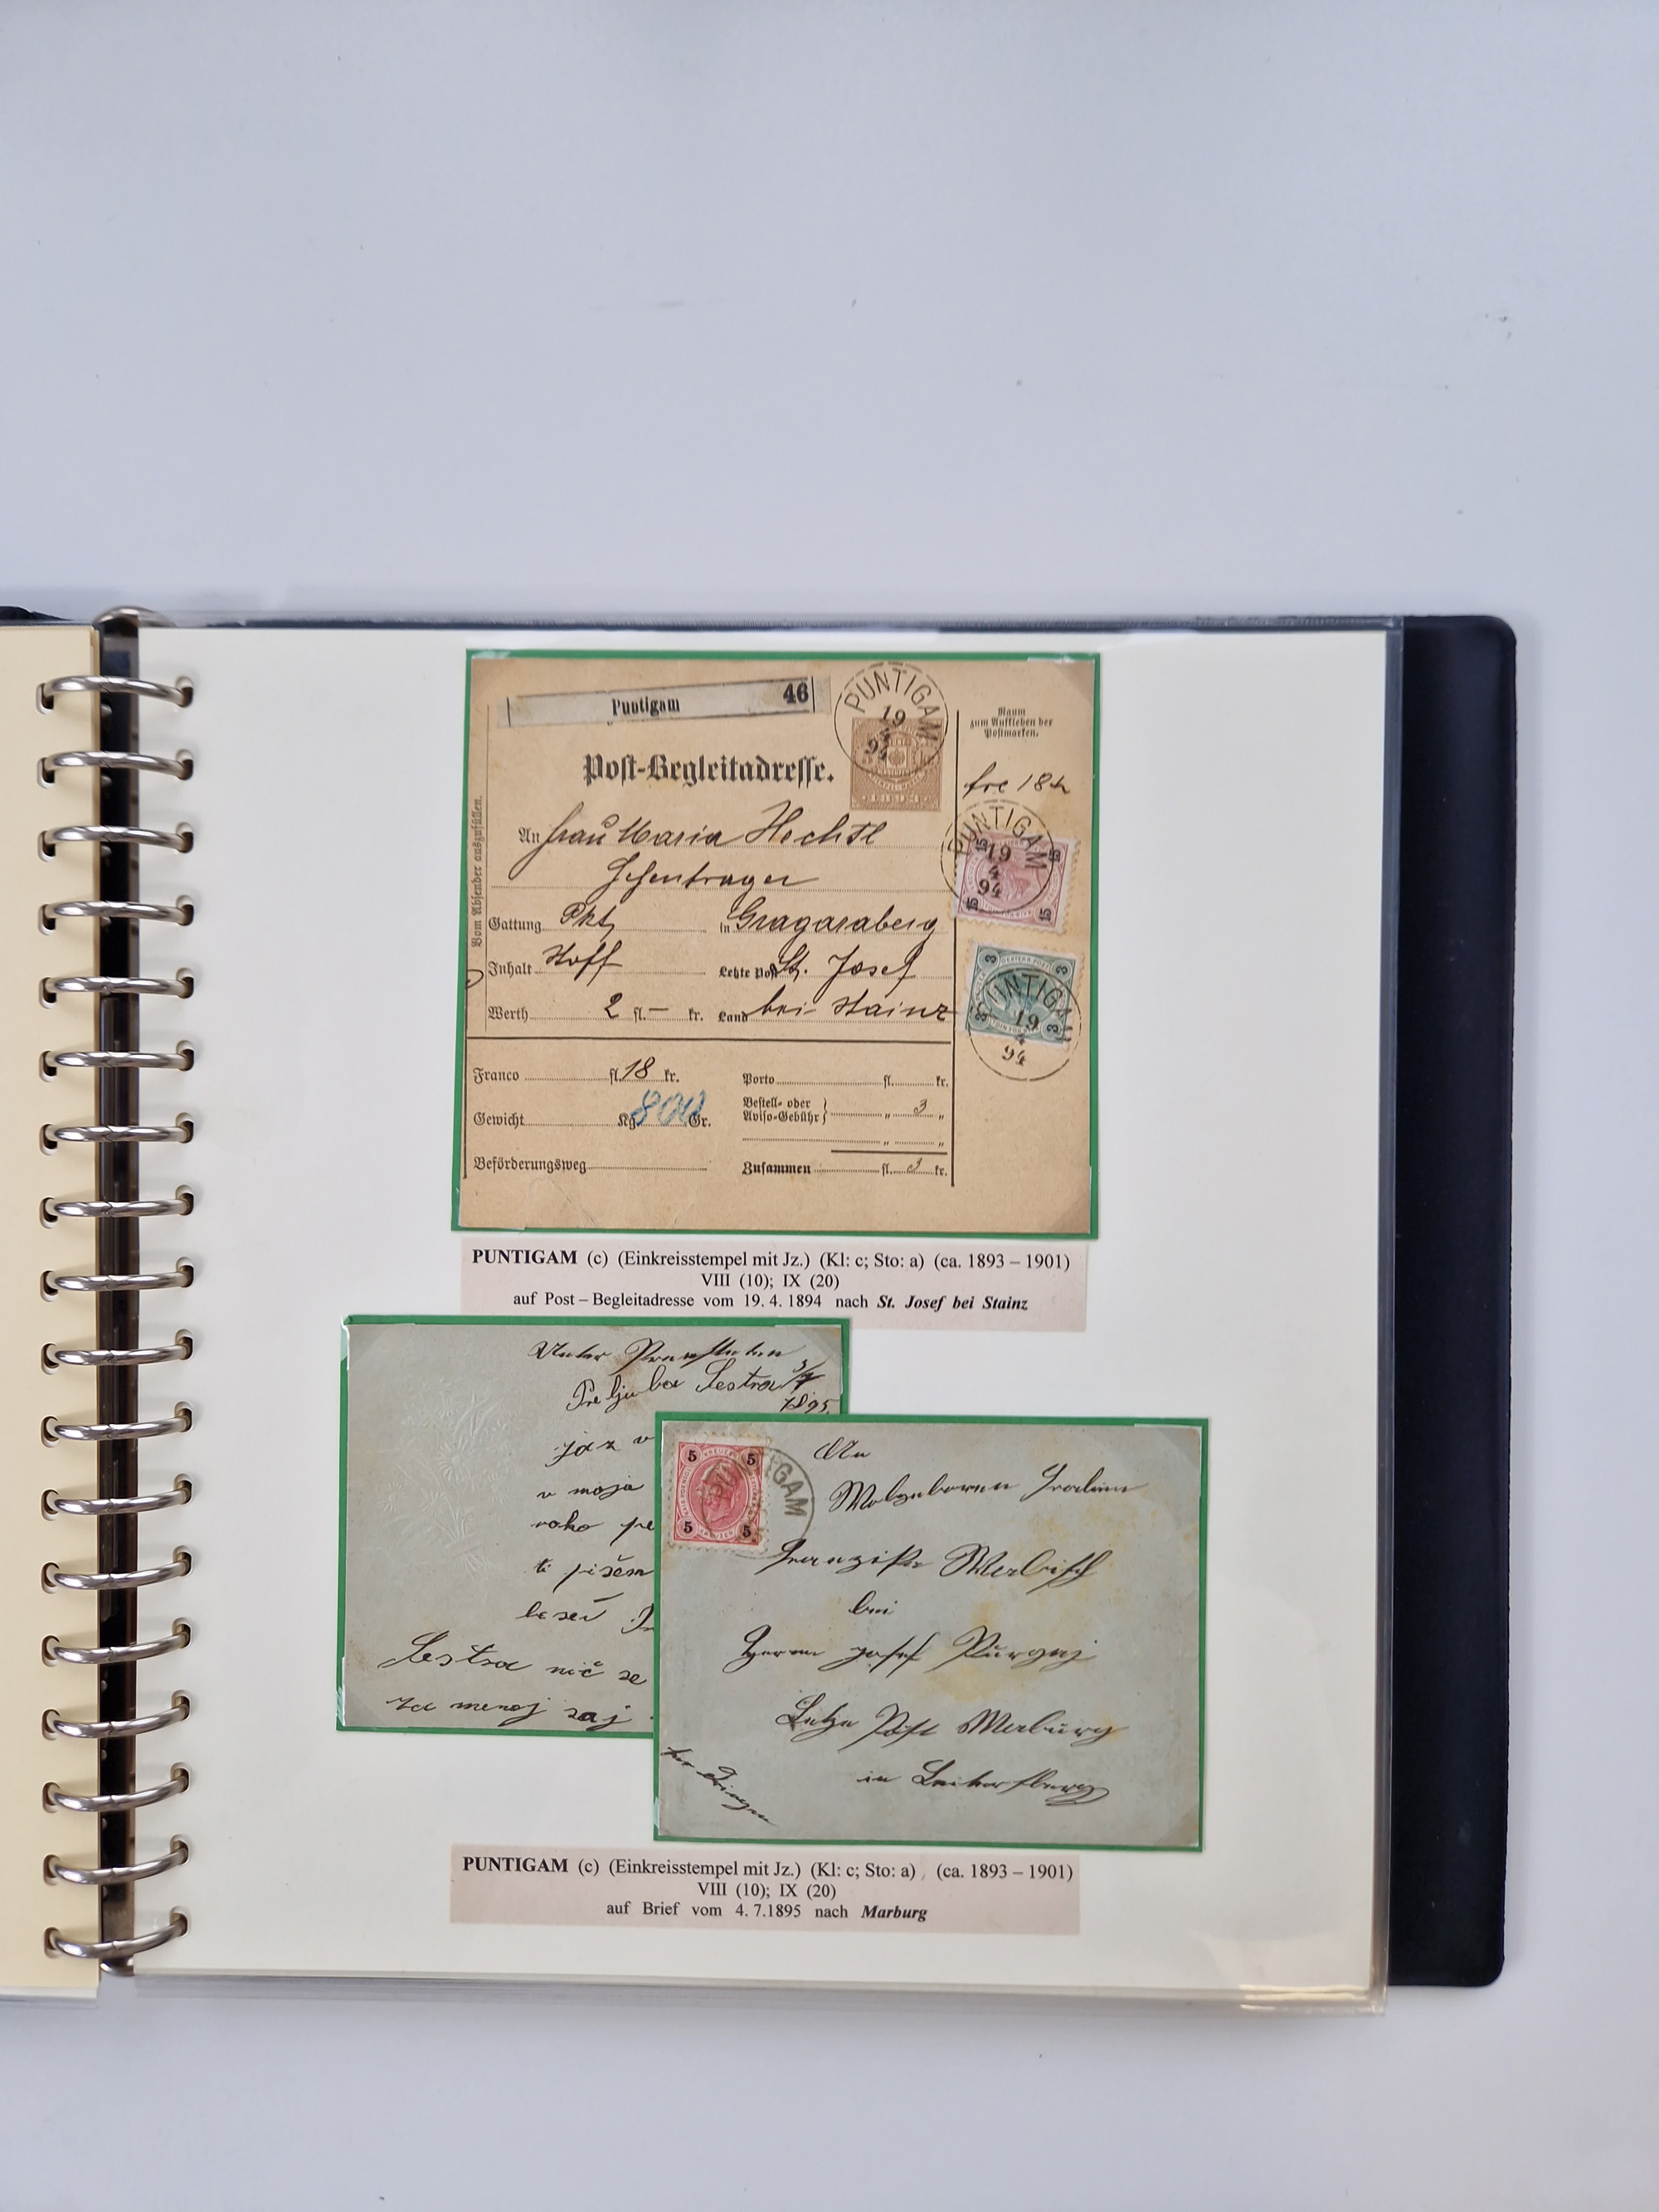 Puntigam 46
PUNTIGAM
19
4
94
Post-Begleitadresse.
Raum
zum Aufkleben der
Postmarken.
fco 18 kr
Vom Absender auszufüllen.
An Frau Maria Hechtl
PUNTIGAM
19
4
94
15 15 15 15
Gattung Pkt in
Inhalt Stoff Letzte Post St. Josef
Werth 2 fl. — kr. Land bei Stainz
3 3 3 3
PUNTIGAM
19
4
94
Franco fl. 18 kr. Porto fl. kr.
Bestell- oder
Aviso-Gebühr } „ 3 „
Gewicht Kg. 800 Gr.
„ „
Beförderungsweg Zusammen fl. 3 kr.
PUNTIGAM (c) (Einkreisstempel mit Jz.) (Kl: c; Sto: a) (ca. 1893 – 1901)
VIII (10); IX (20)
auf Post – Begleitadresse vom 19. 4. 1894 nach St. Josef bei Stainz
Preljuba Sestra
1895
jaz v
v moja
roko pe
ti pišem
Sestra nič se
za menoj saj
5 5 5 5
PUNTIGAM
An
Wolgeboren Fräulein
Franziska
bei
Herrn Josef
Letze Post Marburg
in
PUNTIGAM (c) (Einkreisstempel mit Jz.) (Kl: c; Sto: a) (ca. 1893 – 1901)
VIII (10); IX (20)
auf Brief vom 4. 7.1895 nach Marburg